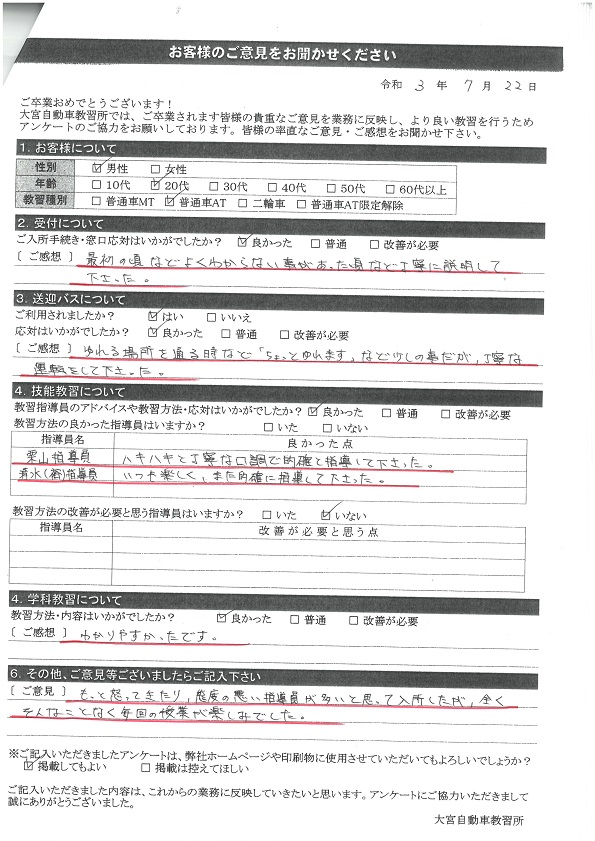 お客様のご意見をお聞かせください
令和 3 年 7 月 22 日
ご卒業おめでとうございます！
大宮自動車教習所では、ご卒業されます皆様の貴重なご意見を業務に反映し、より良い教習を行うため
アンケートのご協力をお願いしております。皆様の率直なご意見・ご感想をお聞かせ下さい。
1. お客様について
性別 ☑男性 □女性
年齢 □10代 ☑20代 □30代 □40代 □50代 □60代以上
教習種別 □普通車MT ☑普通車AT □二輪車 □普通車AT限定解除
2. 受付について
ご入所手続き・窓口応対はいかがでしたか？ ☑良かった □普通 □改善が必要
［ご感想］最初の頃などよくわからない事があった頃など丁寧に説明して
下さった。
3. 送迎バスについて
ご利用されましたか？ ☑はい □いいえ
応対はいかがでしたか？ ☑良かった □普通 □改善が必要
［ご感想］ゆれる場所を通る時など「ちょっとゆれます」など少しの事だが、丁寧な
運転をして下さった。
4. 技能教習について
教習指導員のアドバイスや教習方法・応対はいかがでしたか？ ☑良かった □普通 □改善が必要
教習方法の良かった指導員はいますか？ □いた □いない
指導員名 良かった点
栗山指導員 ハキハキと丁寧な口調で的確と指導して下さった。
清水(裕)指導員 いつも楽しく、また的確に指導して下さった。
教習方法の改善が必要と思う指導員はいますか？ □いた ☑いない
指導員名 改善が必要と思う点
4. 学科教習について
教習方法・内容はいかがでしたか？ ☑良かった □普通 □改善が必要
［ご感想］わかりやすかったです。
6. その他、ご意見等ございましたらご記入下さい
［ご意見］もっと怒ってきたり、態度の悪い指導員が多いと思って入所したが、全く
そんなことなく毎回の授業が楽しみでした。
※ご記入いただきましたアンケートは、弊社ホームページや印刷物に使用させていただいてもよろしいでしょうか？
☑掲載してもよい □掲載は控えてほしい
ご記入いただきました内容は、これからの業務に反映していきたいと思います。アンケートにご協力いただきまして
誠にありがとうございました。
大宮自動車教習所